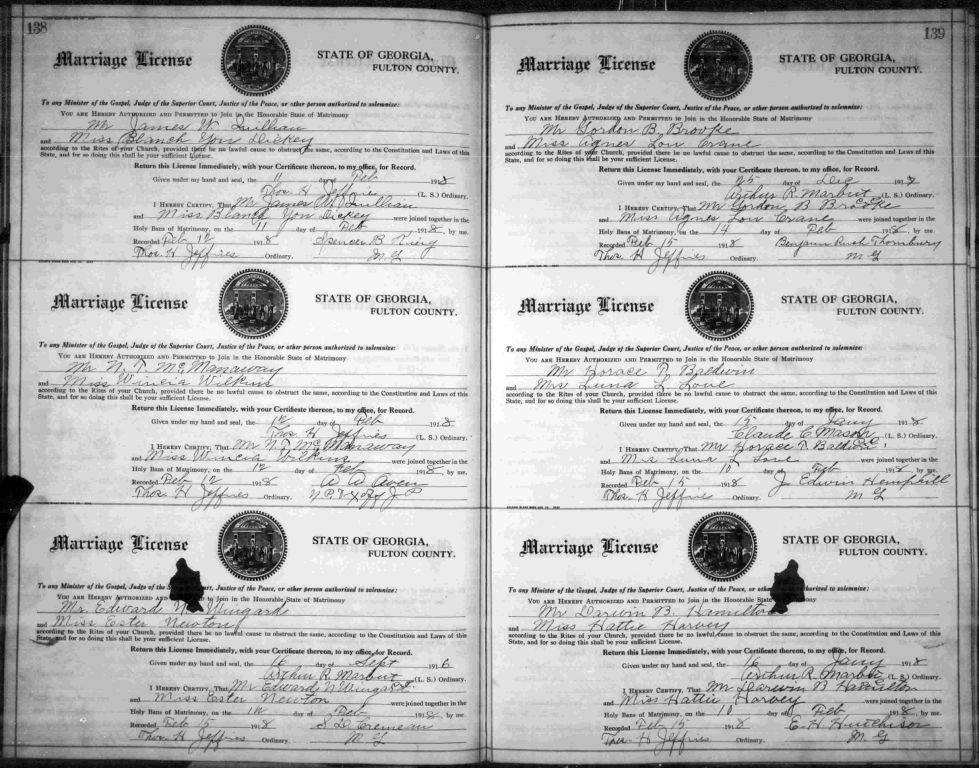 138
Marriage License
STATE OF GEORGIA,
FULTON COUNTY.
To any Minister of the Gospel, Judge of the Superior Court, Justice of the Peace, or other person authorized to solemnize:
YOU ARE HEREBY AUTHORIZED AND PERMITTED TO Join in the Honorable State of Matrimony
Mr James W.
and Miss Blanch Yon Dickey
according to the Rites of your Church, provided there be no lawful cause to obstruct the same, according to the Constitution and Laws of this
State, and for so doing this shall be your sufficient License.
Return this License Immediately, with your Certificate thereon, to my office, for Record.
Given under my hand and seal, the 11 day of Feb 1918
Thos. H. Jeffries (L. S.) Ordinary.
I HEREBY CERTIFY, That Mr James W.
and Miss Blanch Yon Dickey were joined together in the
Holy Bans of Matrimony on the 11 day of Feb 1918, by me.
Recorded Feb 12 1918 Spencer B.
Thos. H Jeffries Ordinary. M. G
Marriage License
STATE OF GEORGIA,
FULTON COUNTY.
To any Minister of the Gospel, Judge of the Superior Court, Justice of the Peace, or other person authorized to solemnize:
YOU ARE HEREBY AUTHORIZED AND PERMITTED TO Join in the Honorable State of Matrimony
Mr N. T. McManaway
and Miss Wincia Wilkins
according to the Rites of your Church, provided there be no lawful cause to obstruct the same, according to the Constitution and Laws of this
State, and for so doing this shall be your sufficient License.
Return this License Immediately, with your Certificate thereon, to my office, for Record.
Given under my hand and seal, the 12 day of Feb 1918
Thos H Jeffries (L. S.) Ordinary.
I HEREBY CERTIFY, That Mr N. T. McManaway
and Miss Wincia Wilkins were joined together in the
Holy Bans of Matrimony, on the 12 day of Feb 1918, by me.
Recorded Feb 12 1918 W. Aven
Thos H Jeffries Ordinary. J P
Marriage License
STATE OF GEORGIA,
FULTON COUNTY.
To any Minister of the Gospel, Judge of the Superior Court, Justice of the Peace, or other person authorized to solemnize:
YOU ARE HEREBY AUTHORIZED AND PERMITTED TO Join in the Honorable State of Matrimony
Mr. Edward N. Wingard
and Miss Ester Newton
according to the Rites of your Church, provided there be no lawful cause to obstruct the same, according to the Constitution and Laws of this
State, and for so doing this shall be your sufficient License.
Return this License Immediately, with your Certificate thereon, to my office, for Record.
Given under my hand and seal, the 16 day of Sept 1916
Arthur R. Marbut (L. S.) Ordinary.
I HEREBY CERTIFY, That Mr Edward N Wingard
and Miss Ester Newton were joined together in the
Holy Bans of Matrimony, on the day of Feb 1918, by me.
Recorded Feb 15 1918
Thos. H Jeffries Ordinary. M. G
139
Marriage License
STATE OF GEORGIA,
FULTON COUNTY.
To any Minister of the Gospel, Judge of the Superior Court, Justice of the Peace, or other person authorized to solemnize:
YOU ARE HEREBY AUTHORIZED AND PERMITTED TO Join in the Honorable State of Matrimony
Mr Gordon B. Brooke
and Miss Agnes Lou Crane
according to the Rites of your Church, provided there be no lawful cause to obstruct the same, according to the Constitution and Laws of this
State, and for so doing this shall be your sufficient License.
Return this License Immediately, with your Certificate thereon, to my office, for Record.
Given under my hand and seal, the 25 day of Dec 1917
Arthur R. Marbut (L. S.) Ordinary.
I HEREBY CERTIFY, That Mr Gordon B Brooke
and Miss Agnes Lou Crane were joined together in the
Holy Bans of Matrimony, on the 14 day of Feb 1918, by me.
Recorded Feb 15 1918 Benjamin Rush Thornbury
Thos. H Jeffries Ordinary. M G
Marriage License
STATE OF GEORGIA,
FULTON COUNTY.
To any Minister of the Gospel, Judge of the Superior Court, Justice of the Peace, or other person authorized to solemnize:
YOU ARE HEREBY AUTHORIZED AND PERMITTED TO Join in the Honorable State of Matrimony
Mr Horace T. Baldwin
and Mrs Luna L Love
according to the Rites of your Church, provided there be no lawful cause to obstruct the same, according to the Constitution and Laws of this
State, and for so doing this shall be your sufficient License.
Return this License Immediately, with your Certificate thereon, to my office, for Record.
Given under my hand and seal, the 15 day of Jany 1918
Claude C. Mason (L. S.) Ordinary.
I HEREBY CERTIFY, That Mr Horace T. Baldwin
and Mrs Luna L Love were joined together in the
Holy Bans of Matrimony, on the 10 day of Feb 1918, by me.
Recorded Feb 15 1918 J Edwin Hemphill
Thos. H Jeffries Ordinary. M G
Marriage License
STATE OF GEORGIA,
FULTON COUNTY.
To any Minister of the Gospel, Judge of the Superior Court, Justice of the Peace, or other person authorized to solemnize:
YOU ARE HEREBY AUTHORIZED AND PERMITTED TO Join in the Honorable State of Matrimony
Mr Darwin B. Hamilton
and Miss Hattie Harvey
according to the Rites of your Church, provided there be no lawful cause to obstruct the same, according to the Constitution and Laws of this
State, and for so doing this shall be your sufficient License.
Return this License Immediately, with your Certificate thereon, to my office, for Record.
Given under my hand and seal, the 16 day of Jany 1918
Arthur R. Marbut (L. S.) Ordinary.
I HEREBY CERTIFY, That Mr Darwin B Hamilton
and Miss Hattie Harvey were joined together in the
Holy Bans of Matrimony, on the 10 day of Feb 1918, by me.
Recorded Feb 15 1918 E. H. Hutchison
Thos. H Jeffries Ordinary. M. G